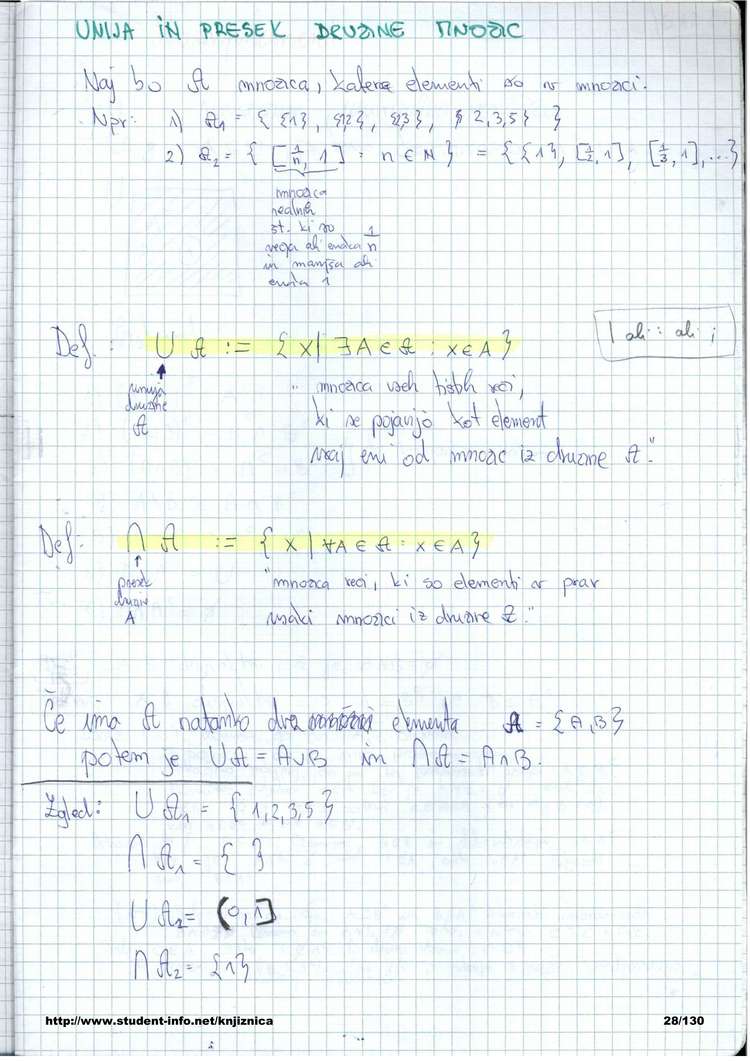 UNIJA IN PRESEK DRUŽINE MNOŽIC
Naj bo A množica, katere elementi so v množici.
Npr: 1) A₁ = { {1}, {1,2}, {2,3}, {2,3,5} }
2) A₂ = { [1/n, 1] : n ∈ N } = { {1}, [1/2, 1], [1/3, 1], ... }
množica
realnih
št. ki so
večja ali enaka 1/n
in manjša ali
enaka 1
Def.: ∪ A := { x | ∃A ∈ A : x ∈ A }
| ali : ali ;
unija
družine
A
"množica vseh tistih reči,
ki se pojavijo kot element
vsaj eni od množic iz družine A."
Def: ∩ A := { x | ∀A ∈ A : x ∈ A }
presek
družine
A
"množica reči, ki so elementi v prav
vsaki množici iz družine A."
Če ima A natanko dva elementa A = {A,B}
potem je ∪A = A∪B in ∩A = A∩B.
Zgled: ∪ A₁ = { 1,2,3,5 }
∩ A₁ = { }
∪ A₂ = (0,1]
∩ A₂ = {1}
http://www.student-info.net/knjiznica 28/130